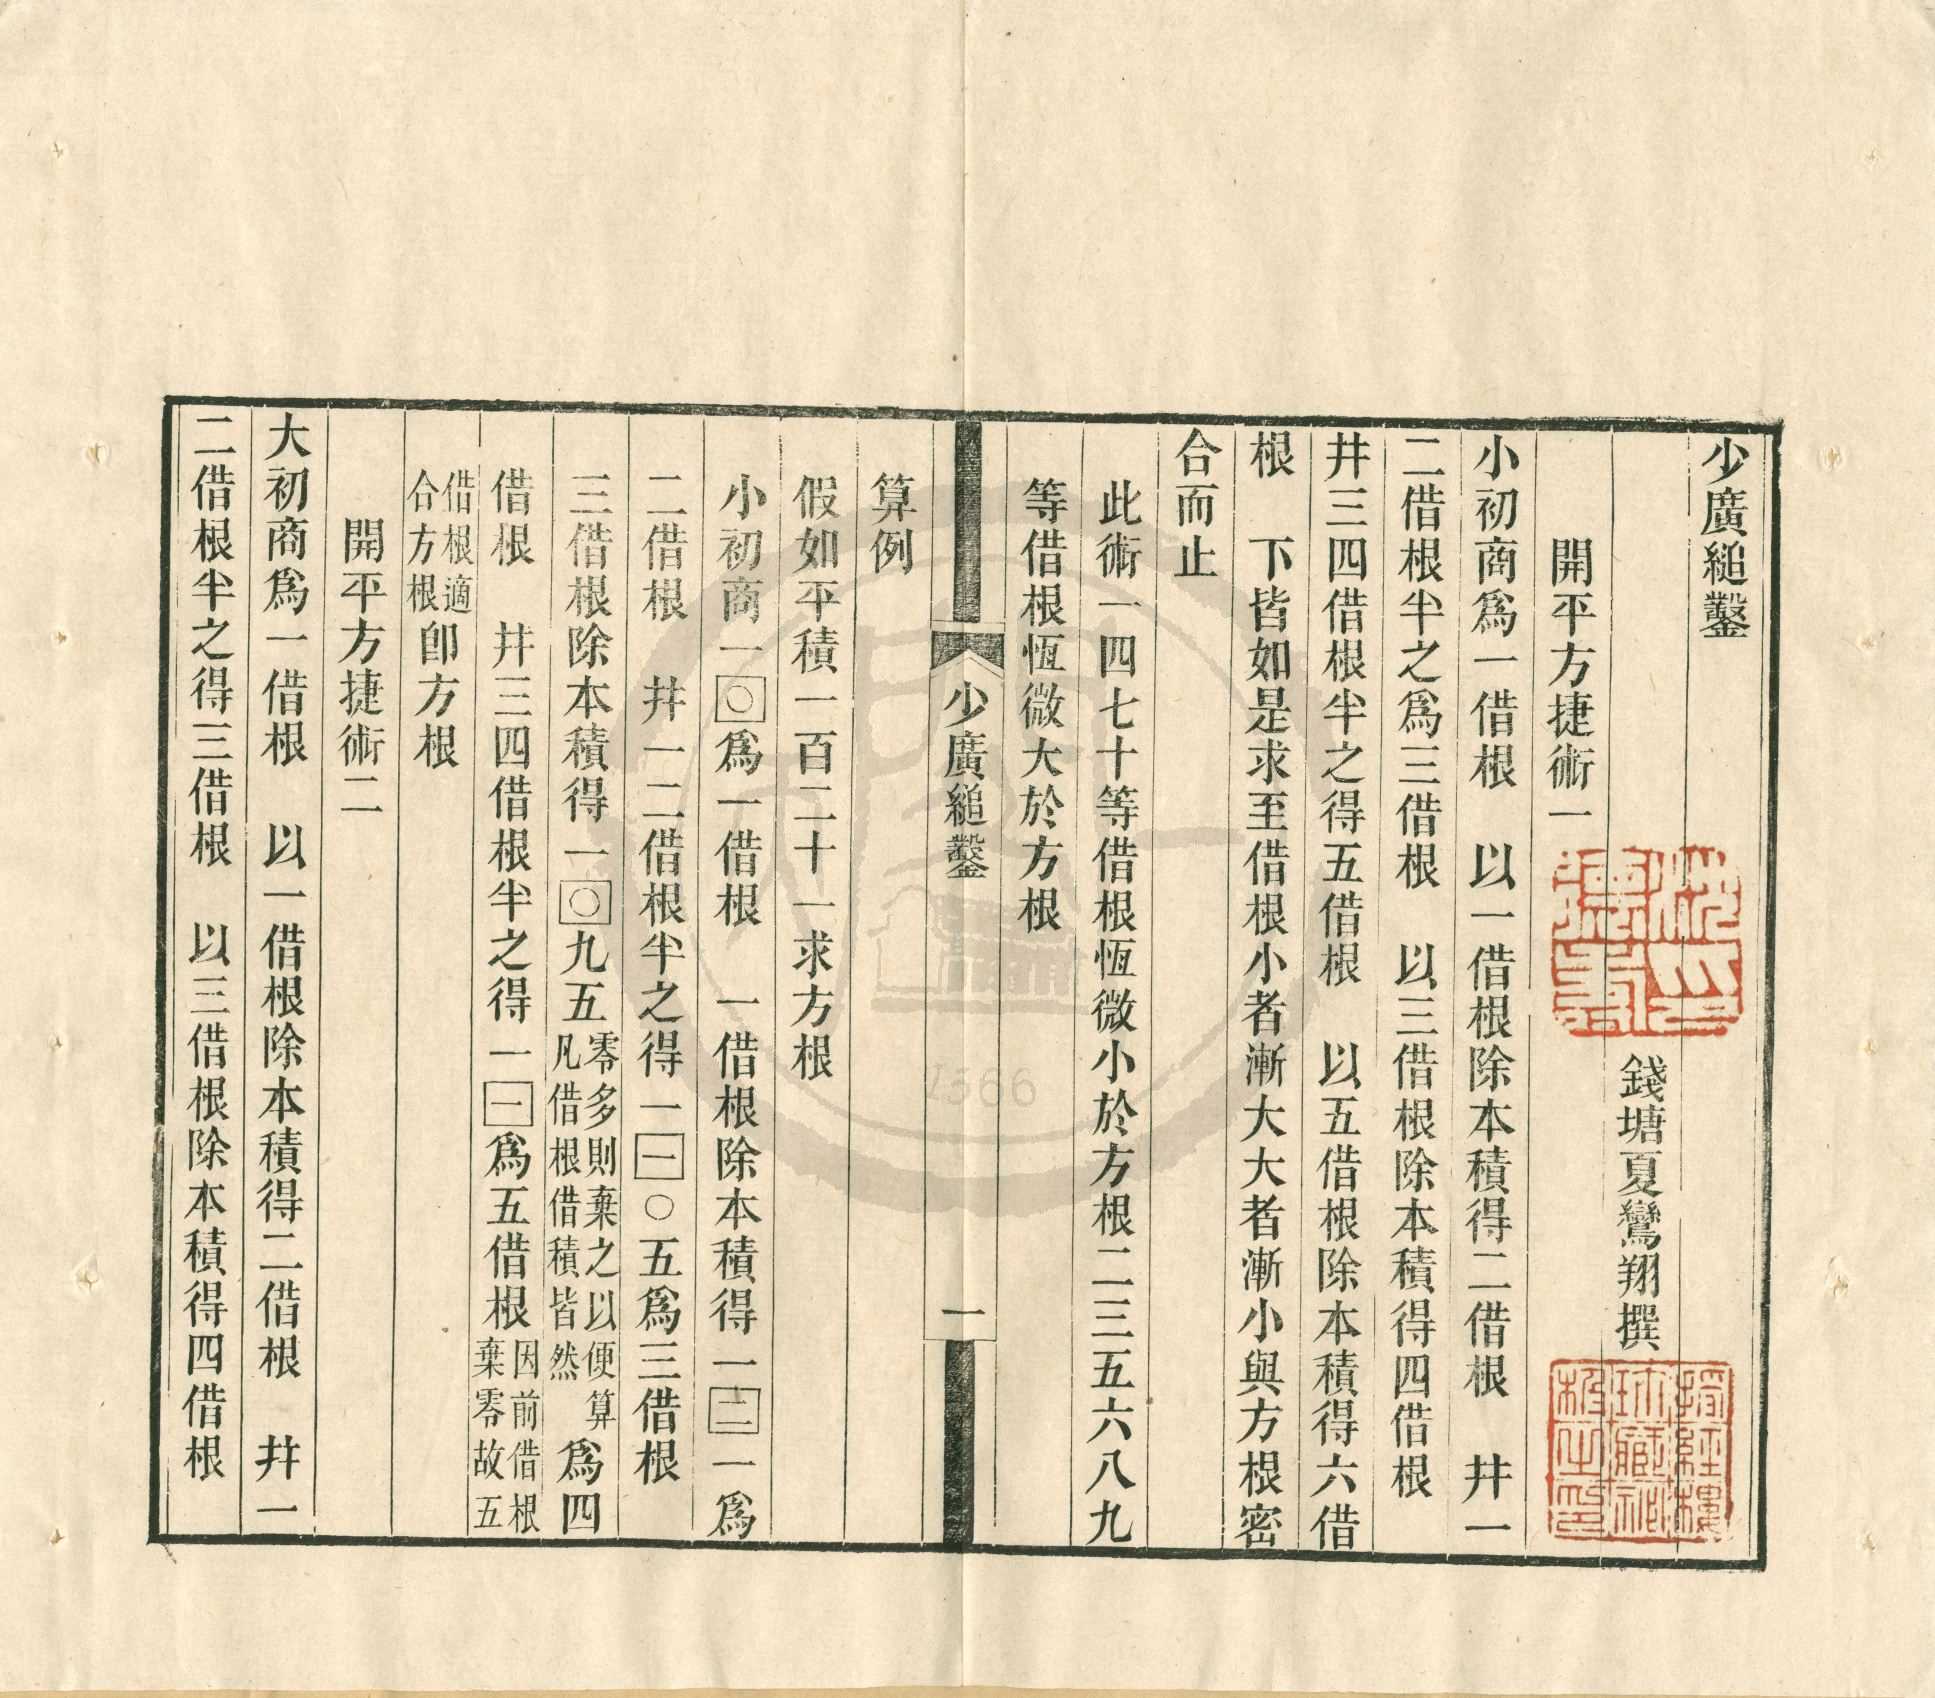 少廣縋鑿
錢塘夏鸞翔撰
開平方捷術一
小初商爲一借根　以一借根除本積得二借根　幷一
二借根半之爲三借根　以三借根除本積得四借根
幷三四借根半之得五借根　以五借根除本積得六借
根　下皆如是求至借根小者漸大大者漸小與方根密
合而止
此術一四七十等借根恆微小於方根二三五六八九
等借根恆微大於方根
少廣縋鑿
一
算例
假如平積一百二十一求方根
小初商一〇爲一借根　一借根除本積得一二一爲
二借根　幷一二借根半之得一一〇五爲三借根
三借根除本積得一〇九五零多則棄之以便算凡借根借積皆然爲四
借根　幷三四借根半之得一一爲五借根因前借根棄零故五
借根適合方根卽方根
開平方捷術二
大初商爲一借根　以一借根除本積得二借根　幷一
二借根半之得三借根　以三借根除本積得四借根
1366